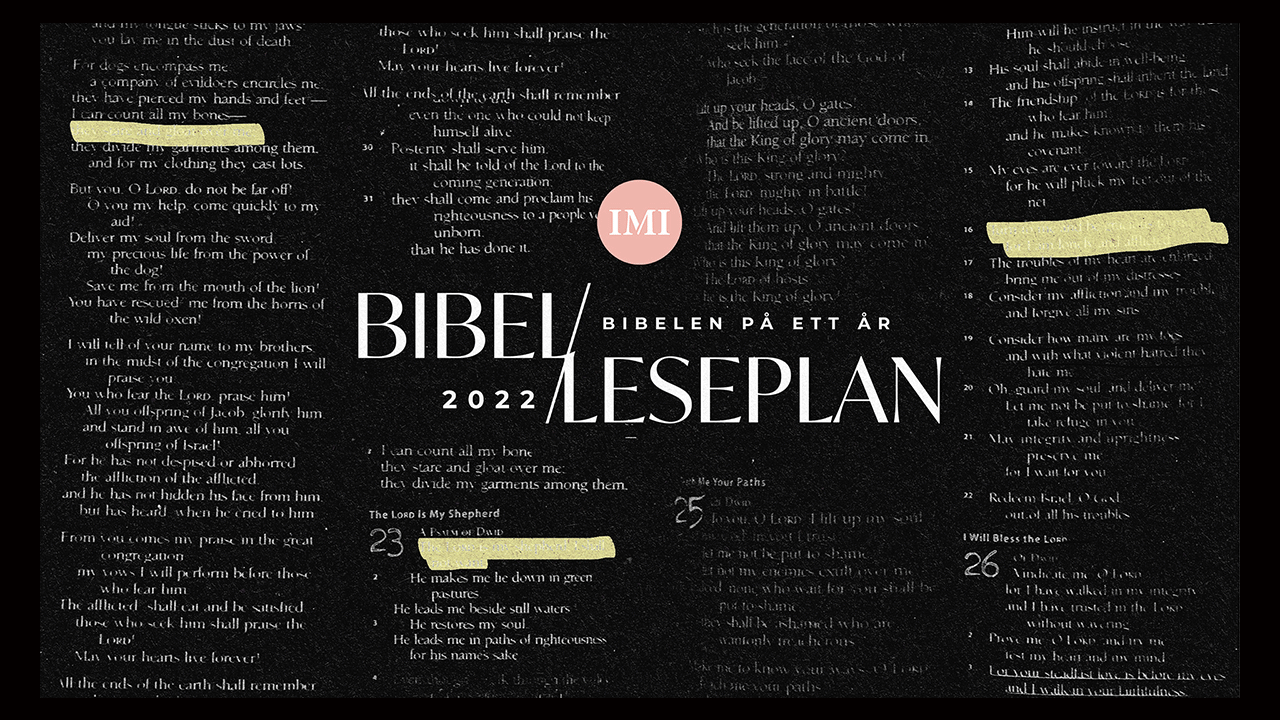 and my tongue sticks to my jaws
you lay me in the dust of death.
For dogs encompass me
a company of evildoers encircles me;
they have pierced my hands and feet —
I can count all my bones—
they divide my garments among them,
and for my clothing they cast lots.
But you, O LORD, do not be far off!
O you my help, come quickly to my
aid!
Deliver my soul from the sword,
my precious life from the power of
the dog!
Save me from the mouth of the lion!
You have rescued me from the horns of
the wild oxen!
I will tell of your name to my brothers;
in the midst of the congregation I will
praise you
You who fear the LORD, praise him!
All you offspring of Jacob, glorify him,
and stand in awe of him, all you
offspring of Israel!
For he has not despised or abhorred
the affliction of the afflicted
and he has not hidden his face from him,
but has heard, when he cried to him
From you comes my praise in the great
congregation
my vows I will perform before those
who fear him
The afflicted shall eat and be satisfied.
those who seek him shall praise the
LORD!
May your hearts live forever!
All the ends of the earth shall remember
those who seek him shall praise the
LORD!
May your hearts live forever!
All the ends of the earth shall remember
even the one who could not keep
himself alive.
30 Posterity shall serve him;
it shall be told of the Lord to the
coming generation;
31 they shall come and proclaim his
righteousness to a people
unborn,
that he has done it.
IMI
BIBEL/
BIBELEN PÅ ETT ÅR
2022
/LESEPLAN
I can count all my bone
they stare and gloat over me;
they divide my garments among them,
The LORD Is My Shepherd
23 A PSALM OF DAVID
2 He makes me lie down in green
pastures.
He leads me beside still waters
3 He restores my soul.
He leads me in paths of righteousness
for his name's sake
4
seek him
who seek the face of the God of
Jacob
Lift up your heads, O gates!
And be lifted up, O ancient doors,
that the King of glory may come in.
Who is this King of glory?
The LORD, strong and mighty,
the LORD, mighty in battle!
Lift up your heads, O gates!
And lift them up, O ancient doors,
that the King of glory may come in
Who is this King of glory?
The LORD of hosts
he is the King of glory!
Me Your Paths
25 Of DAVID
To you, O LORD, I lift up my soul
in you I trust
let me not be put to shame
let not my enemies exult over me
none who wait for you shall be
put to shame
they shall be ashamed who are
wantonly treacherous
Make me to know your ways, O LORD
teach me your paths
Him will he instruct in the way
he should choose
13 His soul shall abide in well-being
and his offspring shall inherit the land
14 The friendship of the LORD is for those
who fear him
and he makes known to them his
covenant.
15 My eyes are ever toward the LORD
for he will pluck my feet out of the
net
16
17 The troubles of my heart are enlarged
bring me out of my distresses
18 Consider my affliction and my trouble
and forgive all my sins
19 Consider how many are my foes
and with what violent hatred they
hate me
20 Oh, guard my soul and deliver me
Let me not be put to shame, for I
take refuge in you
21 May integrity and uprightness
preserve me
for I wait for you
22 Redeem Israel, O God,
out of all his troubles
I Will Bless the LORD
26 Of DAVID
Vindicate me, O LORD
for I have walked in my integrity
and I have trusted in the LORD
without wavering
2 Prove me, O LORD, and try me
test my heart and my mind
3 For your steadfast love is before my eyes
and I walk in your faithfulness